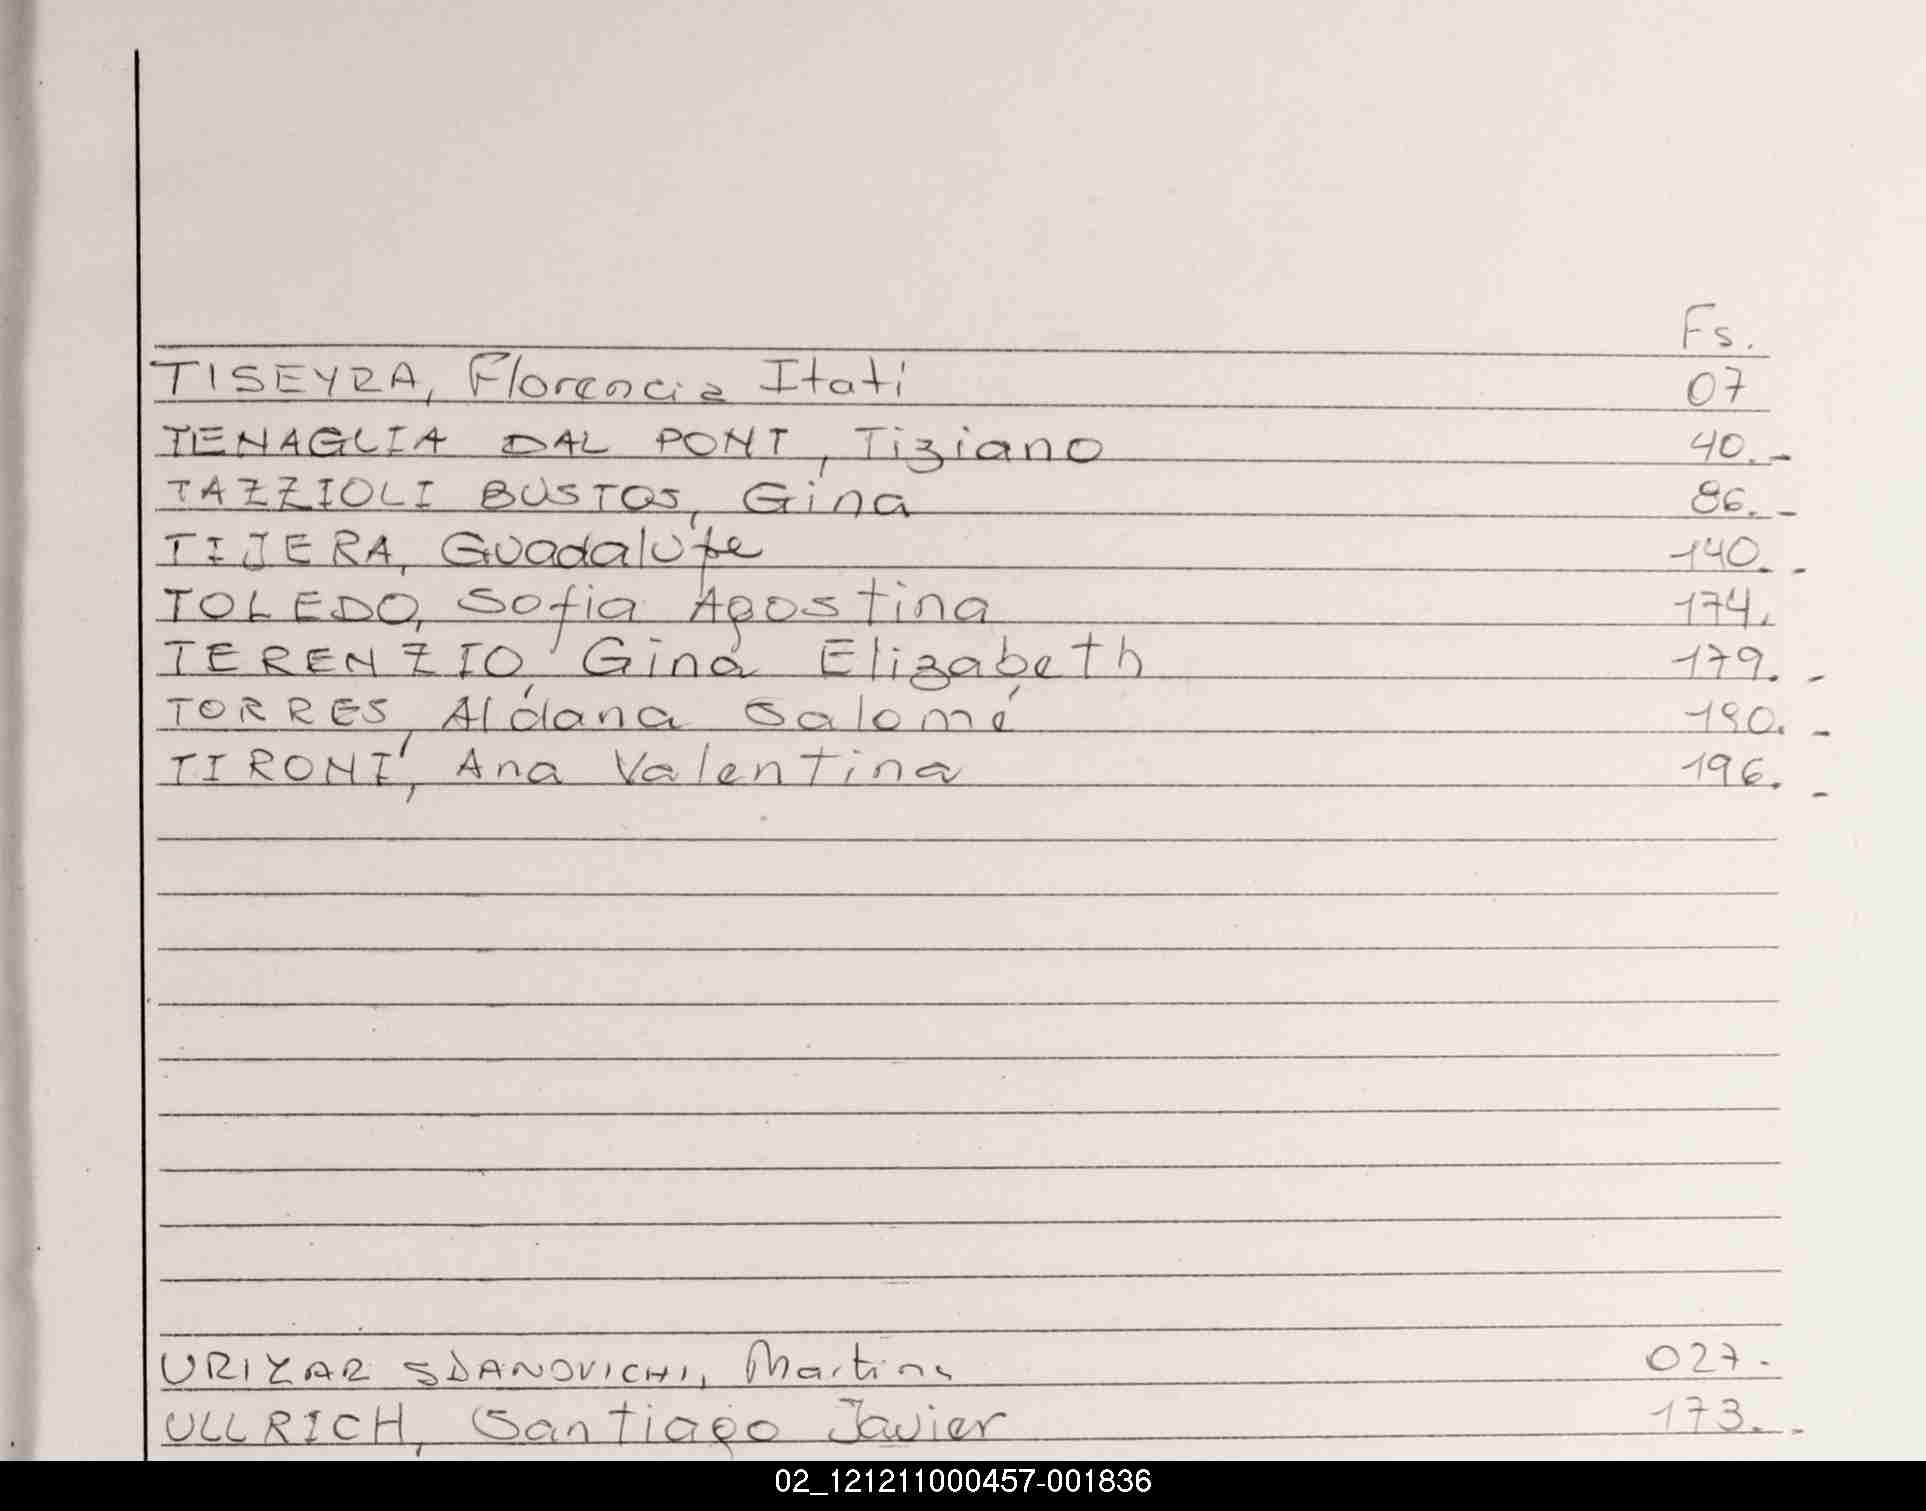 Fs.
TISEYRA, Florencia Itati 07
TENAGLIA DAL PONT, Tiziano 40.-
TAZZIOLI BUSTOS, Gina 86.-
TIJERA, Guadalupe 140.-
TOLEDO, Sofia Agostina 174.
TERENZIO, Gina Elizabeth 179.-
TORRES, Aldana Salomé 190.-
TIRONI, Ana Valentina 196.-
URIZAR SDANOVICHI, Martina 027.
ULLRICH, Santiago Javier 173.-
02_121211000457-001836